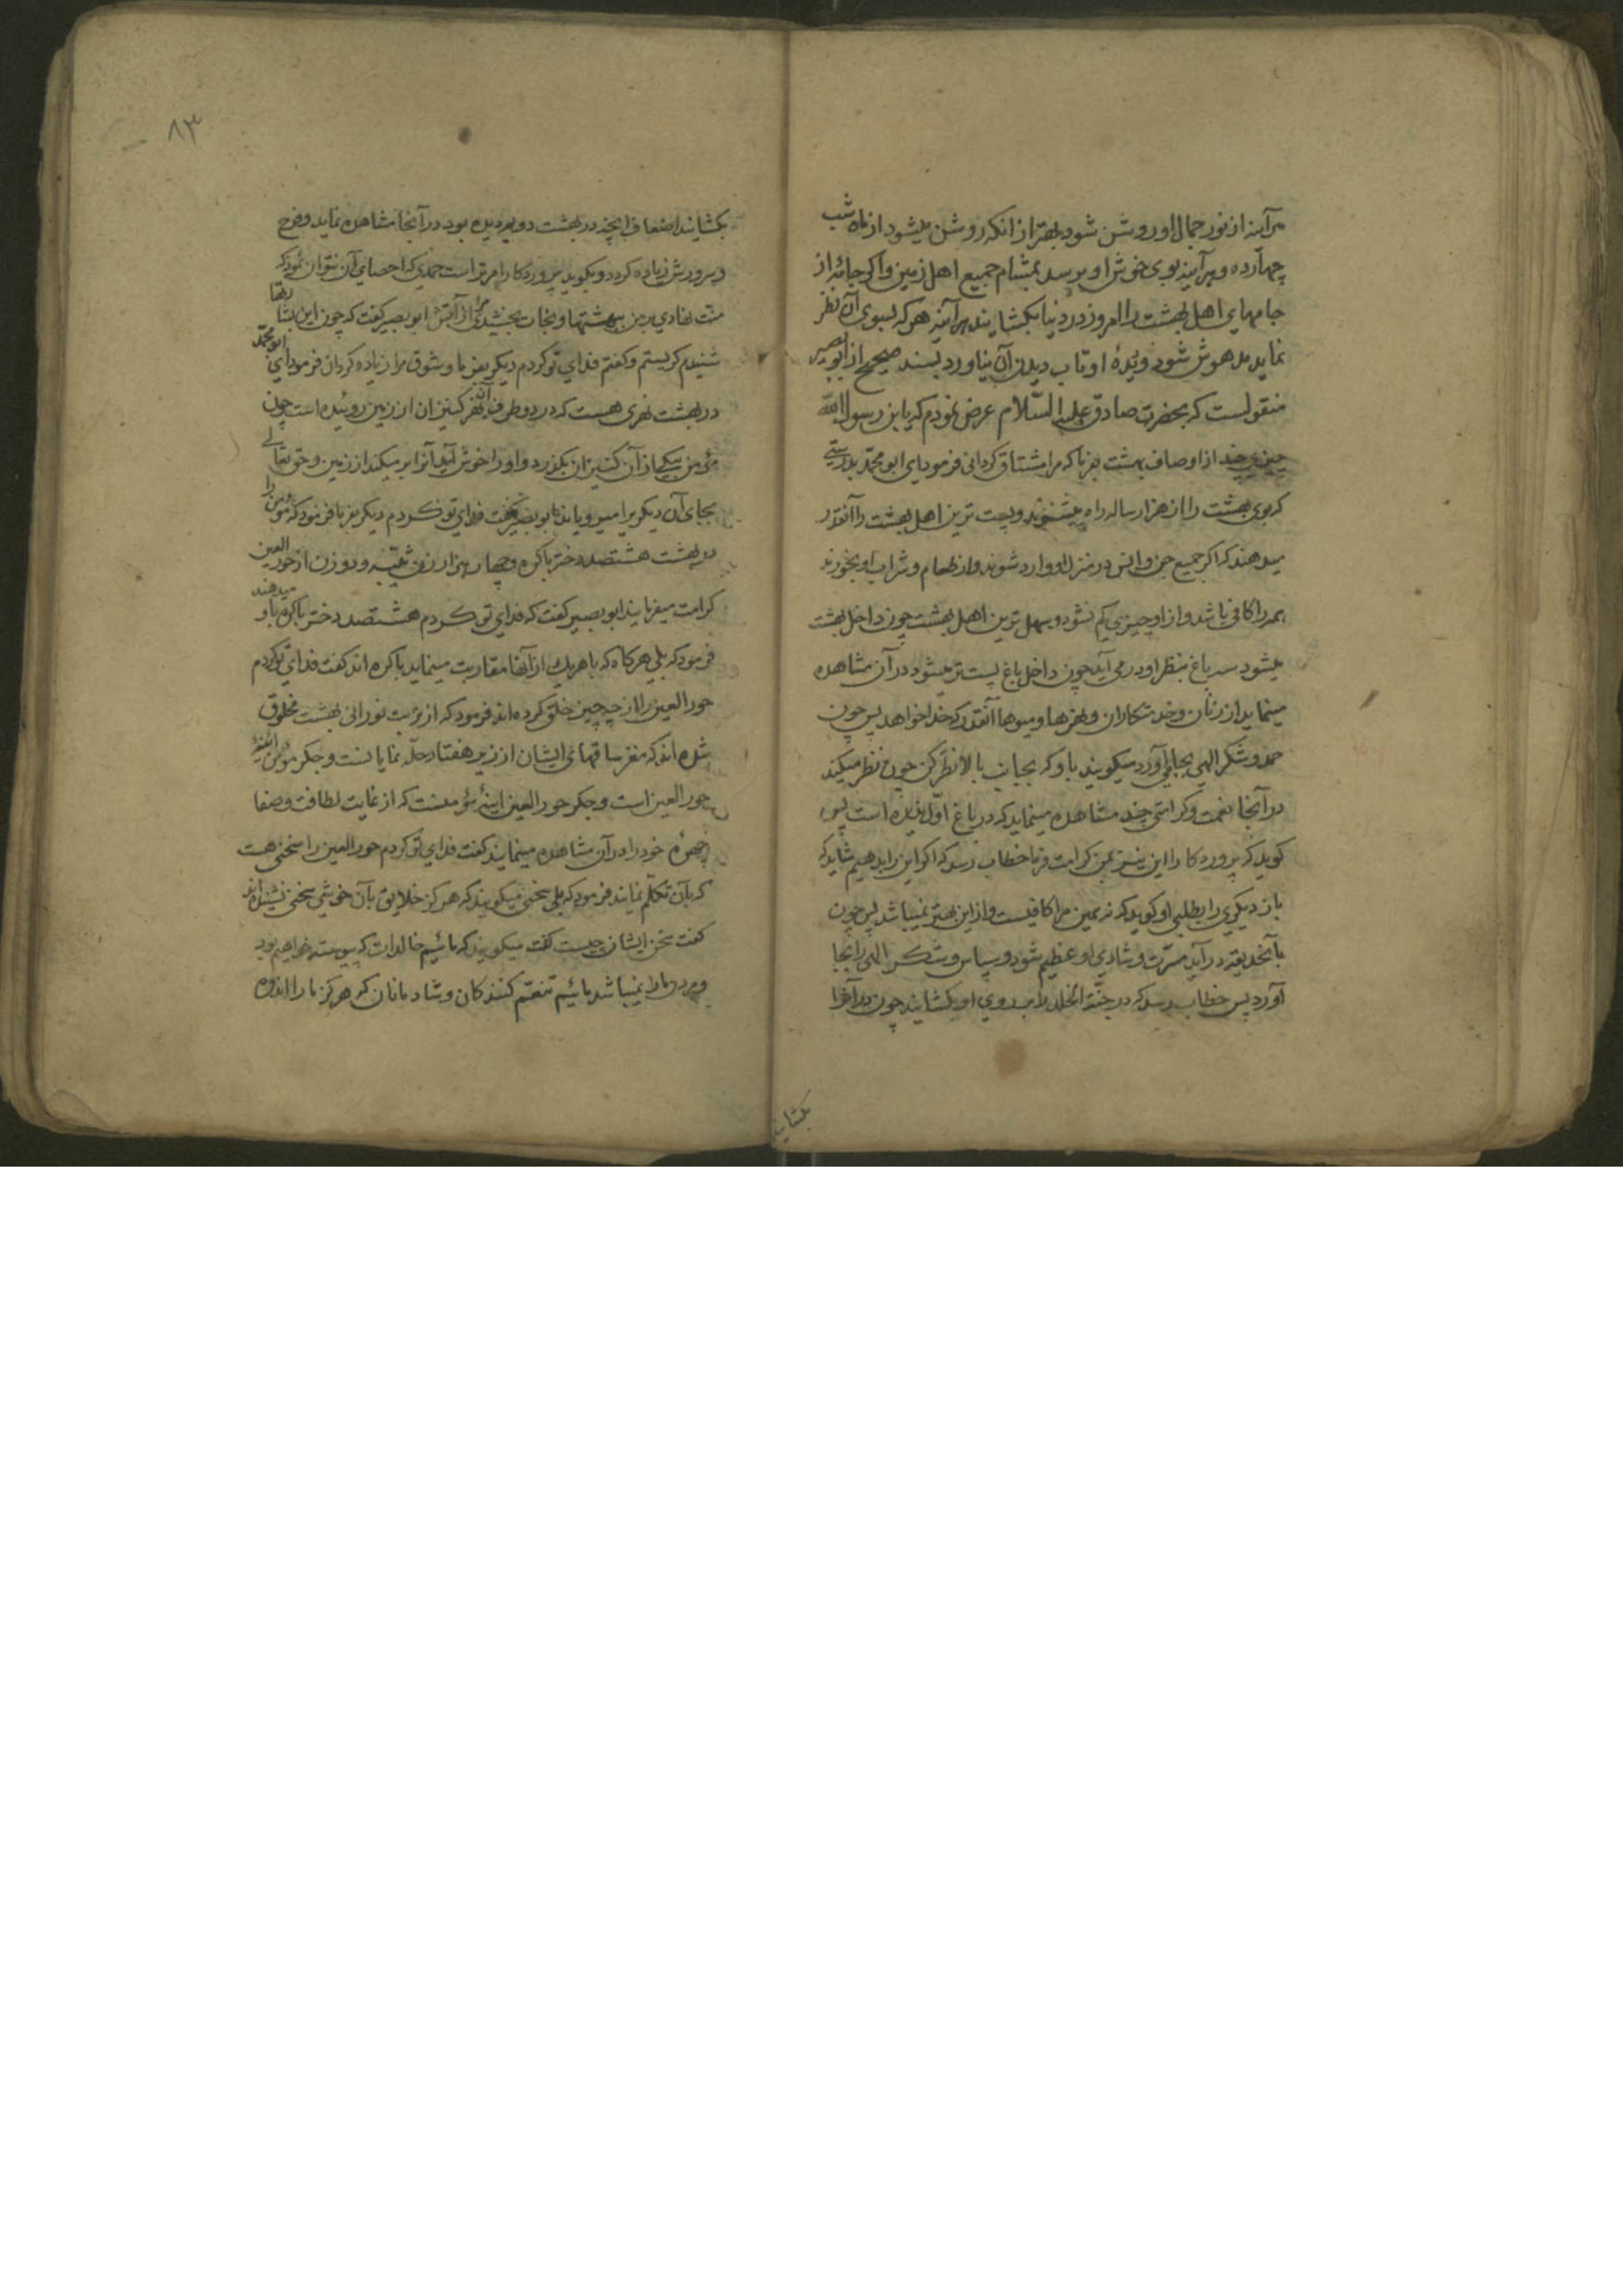 هرآینه از نور جمال او روشن شود بهتر از انکه روشن میشود از ماه شب
چهارده و هرآینه بوی خوش او برسد بمشام جمیع اهل زمین و اگر جامهٔ از
جامهای اهل بهشت را امروز در دنیا بکشایند هرآینه هر که بسوی آن نظر
نماید مدهوش شود و دیدهٔ او تاب دیدن آن نیاورد بسند صحیح از ابو بصیر
منقولست که بحضرت صادق علیه السّلام عرض نمودم که یابن رسول الله
چیزی چند از اوصاف بهشت بفرما که مرا مشتاق گردانی فرمود ای ابو محمّد بدرستی
که بوی بهشت را از هزار ساله راه میشنوند و پست ترین اهل بهشت را آنقدر
میدهند که اگر جمیع جن و انس در منزل او وارد شوند و از طعام و شراب او بخورند
همه را کافی باشد و از او چیزی کم نشود و سهل ترین اهل بهشت چون داخل بهشت
میشود سه باغ بنظر او در می آید چون داخل باغ پست تر میشود در آن مشاهده
مینماید از زنان و خدمتکاران و نهرها و میوها آنقدر که خدا خواهد پس چون
حمد و شکر الهی بجا می آورد میگویند باو که بجانب بالا نظر کن چون نظر میکند
در آنجا نعمت و کرامتی چند مشاهده مینماید که در باغ اوّل ندیده است پس
گوید که پروردگارا این نیز بمن کرامت فرما خطاب رسد که اگر این را بدهیم شاید که
باز دیگری را بطلبی او گوید که نه همین مرا کافیست و از این بهتر نمیباشد پس چون
بآنحدیقه در آید مسرّت و شادی او عظیم شود و سپاس و شکر الهی را بجا
آورد پس خطاب رسد که در جنّة الخلد را بر روی او بکشایند چون در آنرا
بکشایند
۸۳
بکشایند اضعاف انچه در بهشت دویم دیده بود در آنجا مشاهده نماید و فرح
و سرورش زیاده گردد و بگوید پروردگارا مر تراست حمدی که احصای آن نتوان نمود که
منّت نهادی بر من ببهشتها و نجات بخشیدی مرا از آتش ابو بصیر گفت که چون این بشارتها
شنیدم گریستم و گفتم فدای تو گردم دیگر بفرما و شوق مرا زیاده گردان فرمود ای ابو محمّد
در بهشت نهری هست که در دو طرف آن نهر کنیزان از زمین روئیده است چون
مؤمن بیکی از آن کنیزان بگذرد و او را خوش آید آنرا بر میکند از زمین و حق تعالی
بجای آن دیگریرا میرویاند ابو بصیر گفت فدای تو گردم دیگر بفرما فرمود که مؤمن را
در بهشت هشتصد دختر باکره و چهار هزار زن ثیّبه و دو زن از حور العین
کرامت میفرمایند ابو بصیر گفت که فدای تو گردم هشتصد دختر باکره باو میدهند
فرمود که بلی هرگاه که با هریك از آنها مقاربت مینماید باکره اند گفت فدای تو گردم
حور العین را از چه چیز خلق کرده اند فرمود که از تربت نورانی بهشت مخلوق
شده اند که مغز ساقهای ایشان از زیر هفتاد حلّه نمایانست و جگر مؤمن آئینهٔ
حور العین است و جگر حور العین آینهٔ مؤمنست که از غایت لطافت و صفا
چهرهٔ خود را در آن مشاهده مینمایند گفت فدای تو گردم حور العین را سخنی هست
که بآن تکلّم نمایند فرمود که بلی سخنی میگویند که هرگز خلایق بآن خوشی سخنی نشنیده اند
گفت سخن ایشان چیست گفت میگویند که مائیم خالدات که پیوسته خواهیم بود
و مردن ما را نمیباشد مائیم تنعّم کنندگان و شادمانان که هرگز ما را اندوه